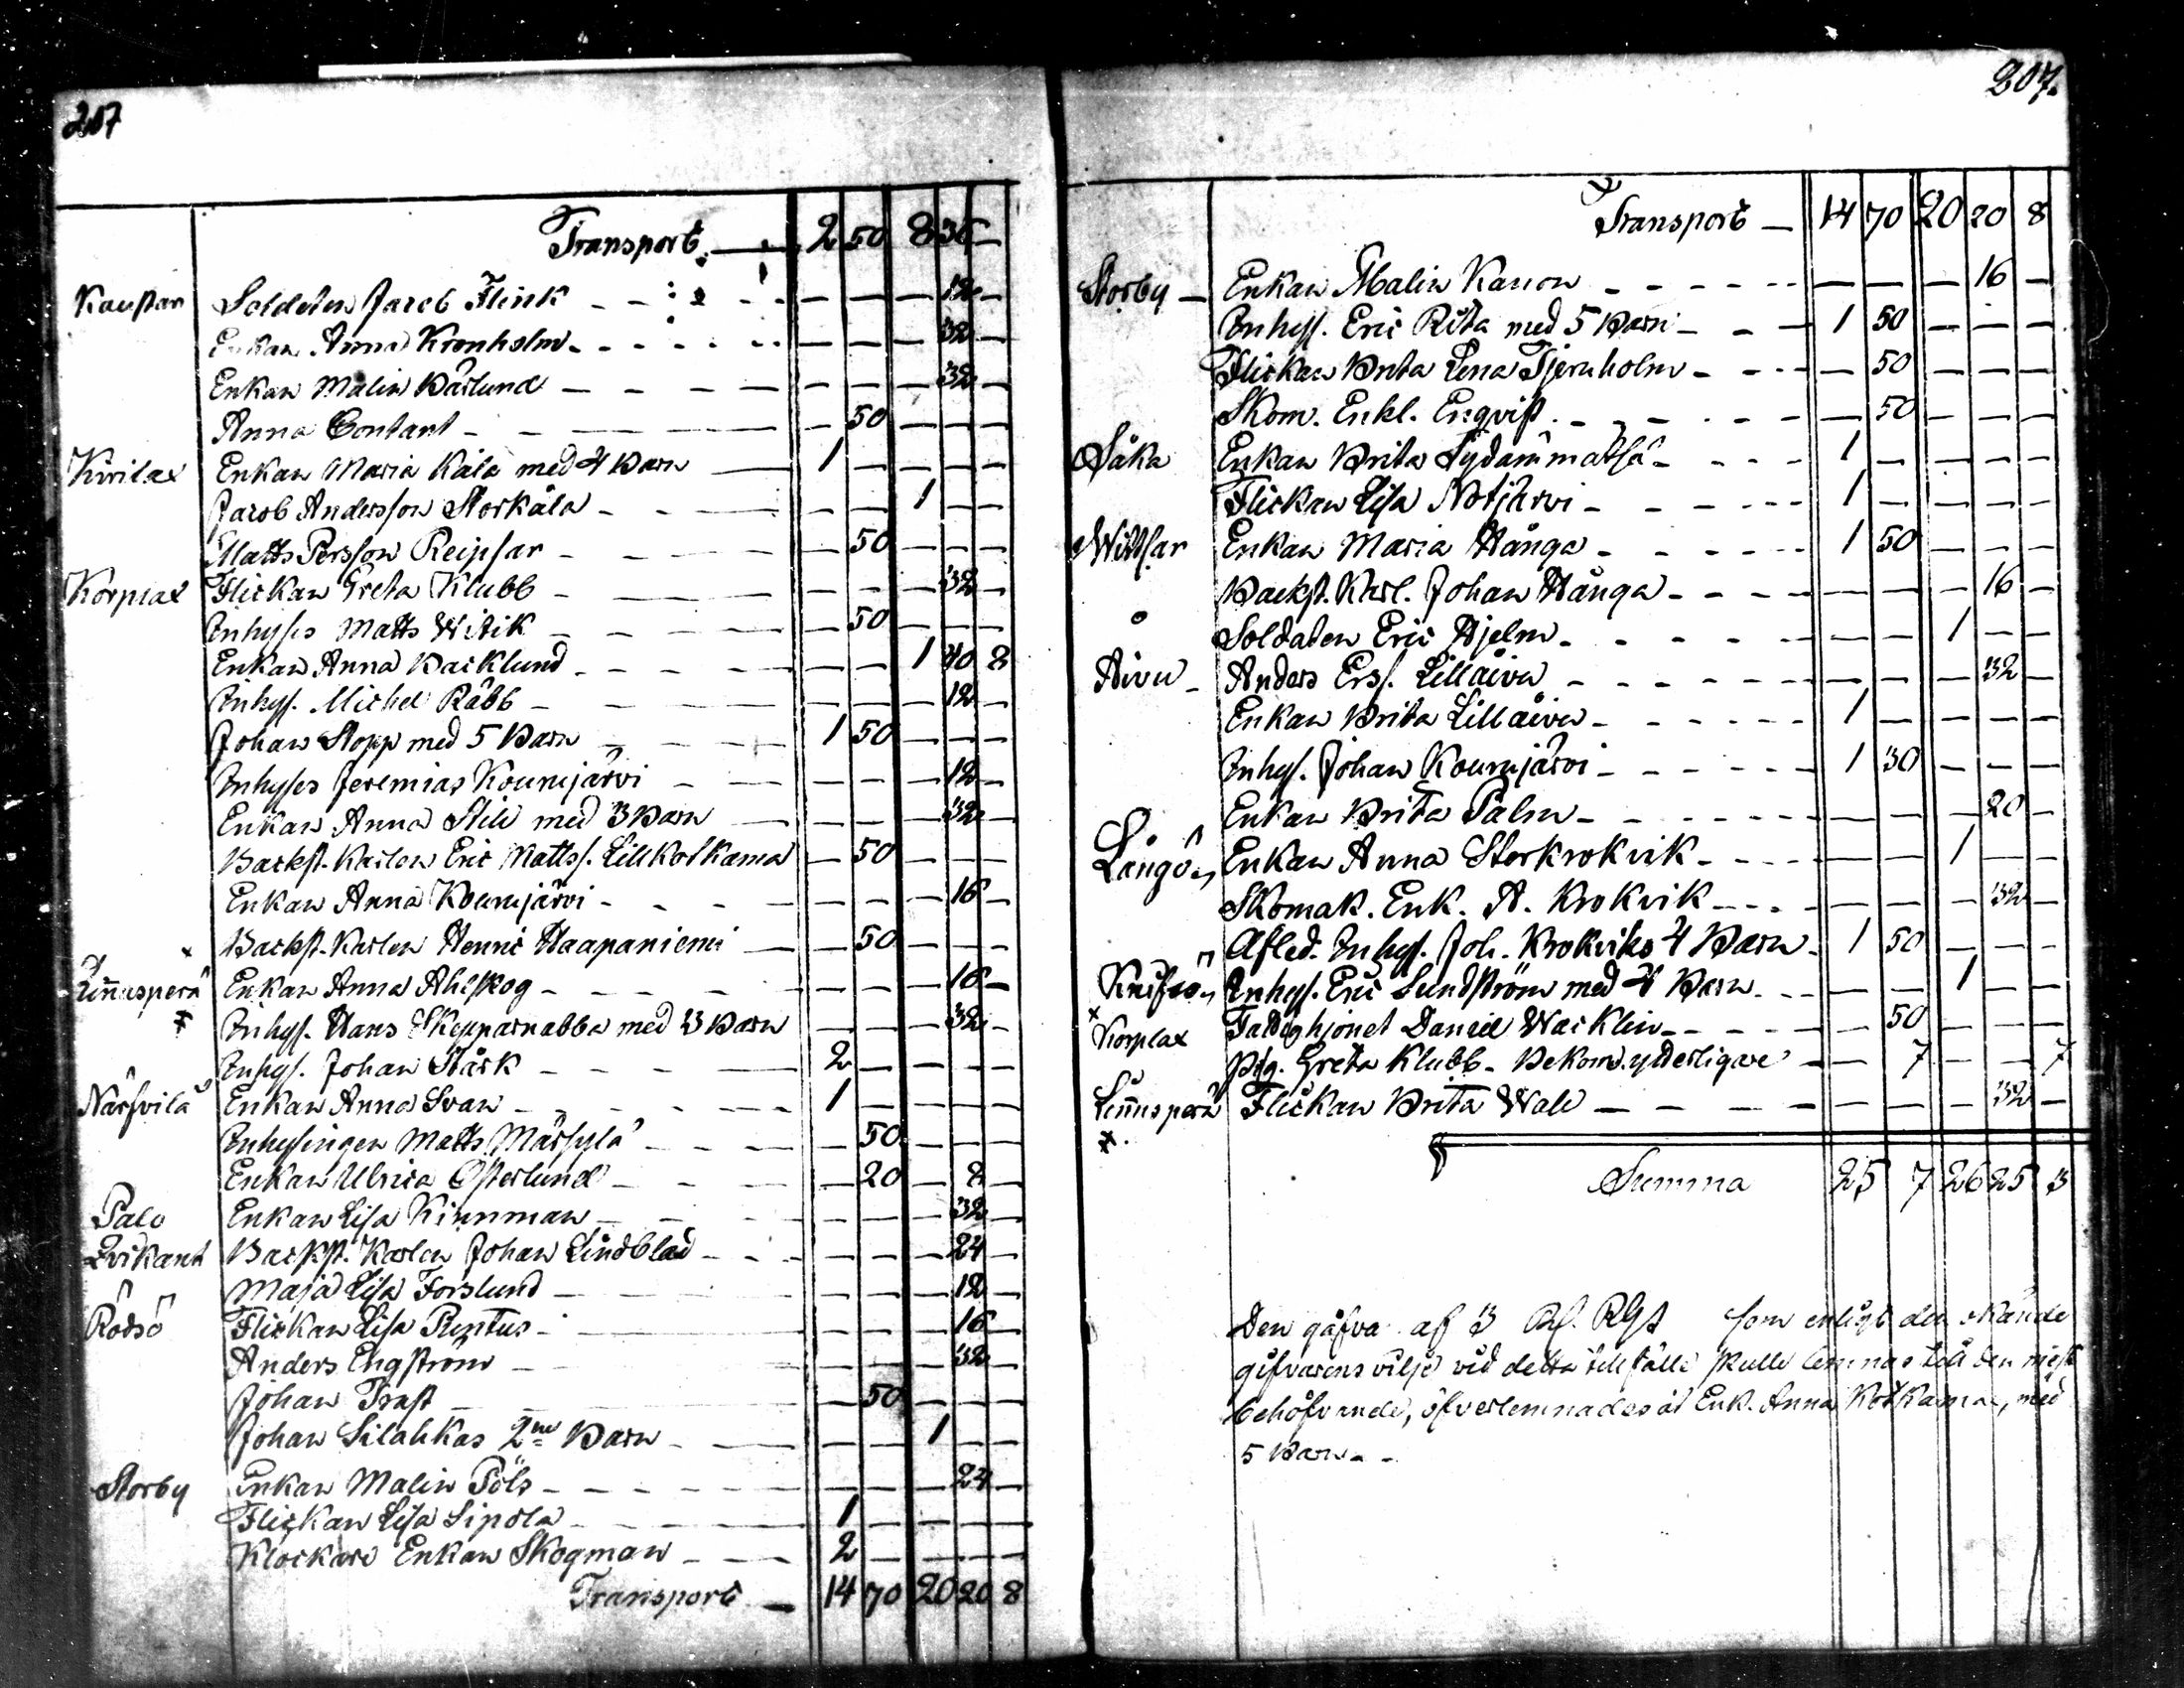 207
Transport — 2 50 8 36 —
Kaustar Soldaten Jacob Flink — — — 12 —
Enkan Anna Kronholm — — — 32 —
Enkan Malin Bäslund — — — 32 —
Anna Contant — 50 — — —
Kirilax Enkan Maria Kåla med 4 Barn 1 — — — —
Jacob Andersson Storkåla — — 1 — —
Matts Persson Reipsar — 50 — — —
Korplax Flickan Greta Klubb — — — 32 —
Inhyses Matts Witik — 50 — — —
Enkan Anna Backlund — — 1 40 8
Inhys. Michel Räbb — — — 12 —
Johan Stopp med 5 Barn 1 50 — — —
Inhyses Jeremias Kounjärvi — — — 12 —
Enkan Anna Stile med 3 Barn — — — 32 —
Backst. Karlen Eric Mattss. Lill Kotkama — 50 — — —
Enkan Anna Kounjärvi — — — 16 —
Backst. Karlen Henric Haapaniemi — 50 — — —
Linnusperä Enkan Anna Ahlskog — — — 16 —
Inhys. Hans Skepparnabba med 3 Barn — — — 32 —
Inhys. Johan Stårk 2 — — — —
Närfvilä Enkan Anna Svan 1 — — — —
Inhysingen Matts Märsylä — 50 — — —
Enkan Ulrica Österlund — 20 — 8 —
Palo Enkan Lisa Kinnman — — — 32 —
Backst. Karlen Johan Lindblad — — — 24 —
Maja Lisa Forslund — — — 12 —
Rödsö Flickan Lisa Puntus — — — 16 —
Anders Engström — — — 32 —
Johan Trast — 50 — — —
Johan Silahkas 2ne Barn — — 1 — —
Storby Enkan Malin Pöls — — — 24 —
Flickan Lisa Sipola 1 — — — —
Klockare Enkan Skogman 2 — — — —
Transport — 14 70 20 20 8
207.
Transport — 14 70 20 20 8
Storby — Enkan Malin Kanon — — — 16 —
Inhys. Eric Rita med 5 Barn 1 50 — — —
Flickan Brita Lena Tjernholm — 50 — — —
Skom. Enkl. Enqvist — 50 — — —
Såka Enkan Brita Sydämmatsä 1 — — — —
Flickan Lisa Notjärvi 1 — — — —
Wittsar Enkan Maria Hånga 1 50 — — —
Backst. Karl. Johan Hånga — — — 16 —
Soldaten Eric Hjelm — — 1 — —
Aivu — Anders Erss. Lillåivu — — — 32 —
Enkan Brita Lillåivu 1 — — — —
Inhys. Johan Kounjärvi 1 30 — — —
Enkan Brita Palm — — — 20 —
Långön Enkan Anna Storkrokvik — — 1 — —
Skomak. Enk. A. Krokvik — — — 32 —
Afled. Inhys. Joh. Krokviks 4 Barn 1 50 — — —
Knifsön Inhys. Eric Sundström med 4 Barn — — 1 — —
Korplax Fattighjonet Daniel Wacklin — 50 — — —
Pig. Greta Klubb. Bekom. ytterligare — 7 — — 7
Linnusperä Flickan Brita Wale — — — 32 —
Summa 25 7 26 25 3
Den gåfva af 3 Rf. RGs som enligt den okände
gifvarens vilje vid detta tillfälle skulle lemnas till den mest
behöfvande, öfverlemnades åt Enk. Anna Kotkama, med
5 Barn —